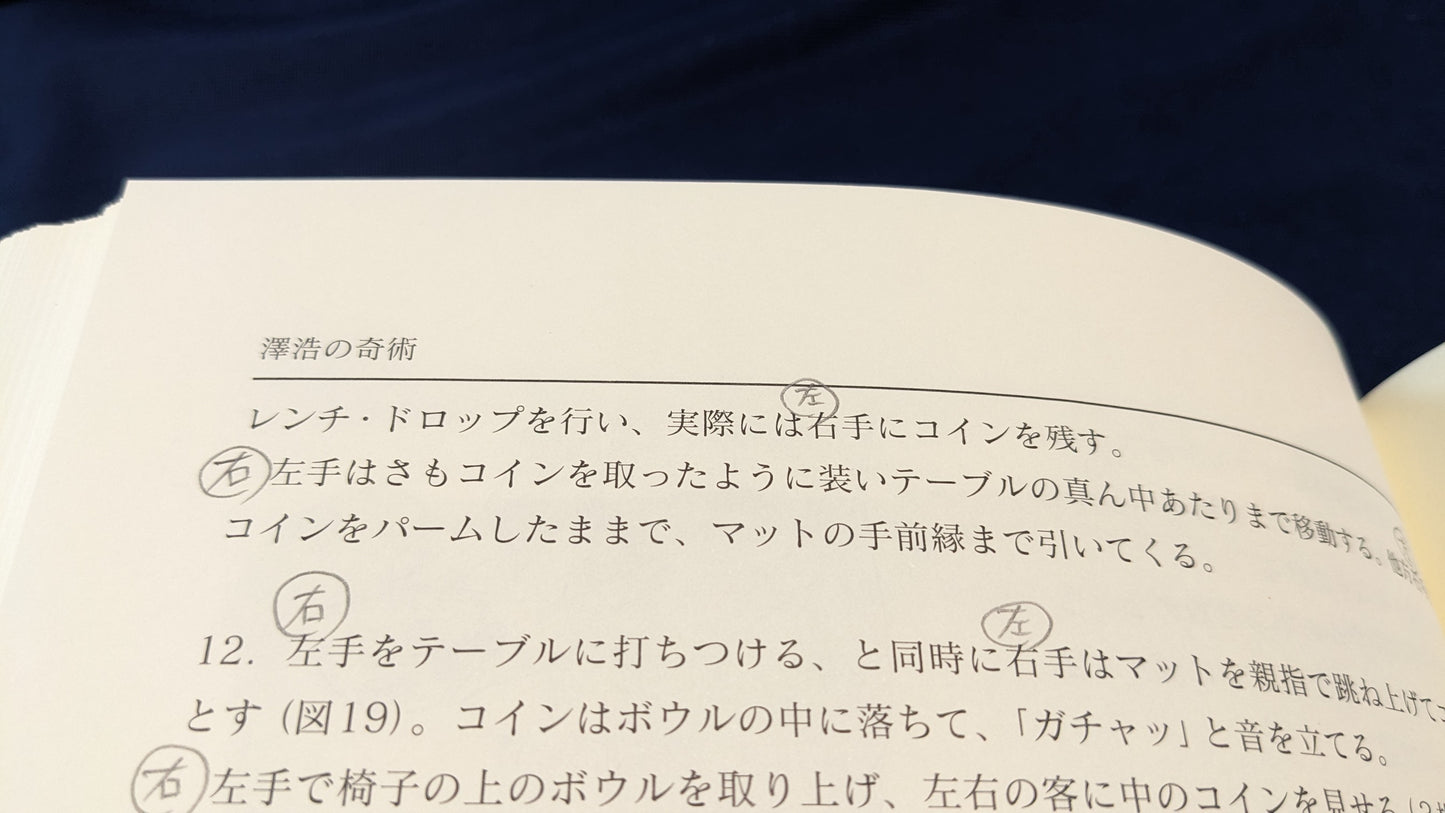 澤浩の奇術
左
レンチ・ドロップを行い、実際には右手にコインを残す。
右 左手はさもコインを取ったように装いテーブルの真ん中あたりまで移動する。
コインをパームしたままで、マットの手前縁まで引いてくる。
右 左
12. 左手をテーブルに打ちつける、と同時に右手はマットを親指で跳ね上げて
とす (図19)。コインはボウルの中に落ちて、「ガチャッ」と音を立てる。
右 左手で椅子の上のボウルを取り上げ、左右の客に中のコインを見せる